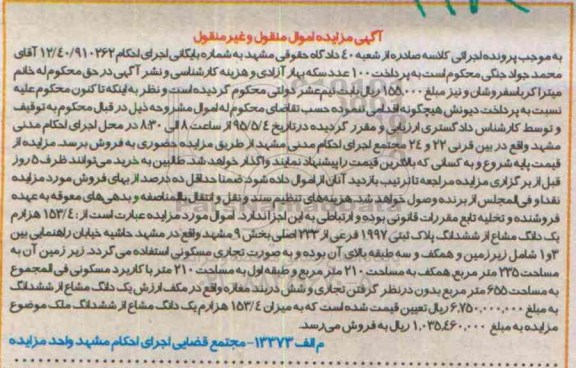 آگهی مزایده اموال منقول و غیر منقول
به موجب پرونده اجرائی کلاسه صادره از شعبه ۴۰ دادگاه حقوقی مشهد به شماره بایگانی اجرای احکام ۱۲/۴۰/۹۱۰۲۶۲ آقای
محمد جواد جنگی محکوم است به پرداخت ۱۰۰ عدد سکه بهار آزادی و هزینه کارشناسی و نشر آگهی در حق محکوم له خانم
میترا کرباسفروشان و نیز مبلغ ۱۵۵،۰۰۰ ریال بابت نیم عشر دولتی محکوم گردیده است و نظر به اینکه تا کنون محکوم علیه
نسبت به پرداخت دیونش هیچگونه اقدامی ننموده حسب تقاضای محکوم له اموال مشروحه ذیل در قبال محکوم به توقیف
و توسط کارشناس دادگستری ارزیابی و مقرر گردیده در تاریخ ۹۵/۵/۴ از ساعت ۸ الی ۸:۳۰ در محل اجرای احکام مدنی
مشهد واقع در بین قرنی ۲۲ و ۲۴ مجتمع اجرای احکام مدنی مشهد از طریق مزایده حضوری به فروش برسد. مزایده از
قیمت پایه شروع و به کسانی که بالاترین قیمت را پیشنهاد نمایند واگذار خواهد شد. طالبین به خرید می توانند ظرف ۵ روز
قبل از برگزاری مزایده مراجعه تا ترتیب بازدید آنان از اموال داده شود. ضمنا حداقل ده درصد از بهای فروش مورد مزایده
نقدا و فی المجلس از برنده وصول خواهد شد. هزینه های تنظیم سند و نقل و انتقال بالمناصفه و بدهی های معوقه به عهده
فروشنده و تخلیه تابع مقررات قانونی بوده و ارتباطی به این اجرا ندارد. اموال مورد مزایده عبارت است از: ۱۵۳/۴ هزارم
یک دانگ مشاع از ششدانگ پلاک ثبتی ۱۹۹۷ فرعی از ۲۳۳ اصلی بخش ۹ مشهد واقع در مشهد حاشیه خیابان راهنمایی بین
۱و۳ شامل زیرزمین و همکف و سه طبقه بالای آن بوده و به صورت تجاری مسکونی استفاده می گردد. زیر زمین آن به
مساحت ۲۳۵ متر مربع، همکف به مساحت ۲۱۰ متر مربع و طبقه اول به مساحت ۲۱۰ متر با کاربرد مسکونی فی المجموع
به مساحت ۶۵۵ متر مربع بدون در نظر گرفتن تجاری و شش دربند مغازه واقع در همکف ارزش یک دانگ مشاع از ششدانگ
به مبلغ ۶،۷۵۰،۰۰۰،۰۰۰ ریال تعیین قیمت شده است که به میزان ۱۵۳/۴ هزارم یک دانگ مشاع از ششدانگ ملک موضوع
مزایده به مبلغ ۱،۰۳۵،۴۶۰،۰۰۰ ریال به فروش می رسد.
م الف ۱۳۳۷۳- مجتمع قضایی اجرای احکام مشهد واحد مزایده